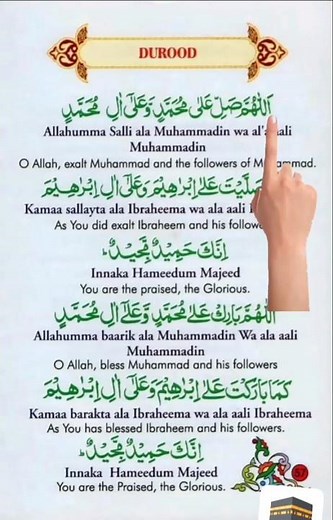 DUROOD
اَللّٰهُمَّ صَلِّ عَلٰى مُحَمَّدٍ وَّعَلٰٓى اٰلِ مُحَمَّدٍ
Allahumma Salli ala Muhammadin wa al'a aali
Muhammadin
O Allah, exalt Muhammad and the followers of Muhammad.
صَلَّيْتَ عَلٰٓى اِبْرٰهِيْمَ وَعَلٰٓى اٰلِ اِبْرٰهِيْمَ
Kamaa sallayta ala Ibraheema wa ala aali
As You did exalt Ibraheem and his
اِنَّكَ حَمِيْدٌ مَّجِيْدٌ
Innaka Hameedum Majeed
You are the praised, the Glorious.
اَللّٰهُمَّ بَارِكْ عَلٰى مُحَمَّدٍ وَّعَلٰٓى اٰلِ مُحَمَّدٍ
Allahumma baarik ala Muhammadin Wa ala aali
Muhammadin
O Allah, bless Muhammad and his followers
كَمَا بَارَكْتَ عَلٰٓى اِبْرٰهِيْمَ وَعَلٰٓى اٰلِ اِبْرٰهِيْمَ
Kamaa barakta ala Ibraheema wa ala aali Ibraheema
As You has blessed Ibraheem and his followers.
اِنَّكَ حَمِيْدٌ مَّجِيْدٌ
Innaka Hameedum Majeed
You are the Praised, the Glorious.
57